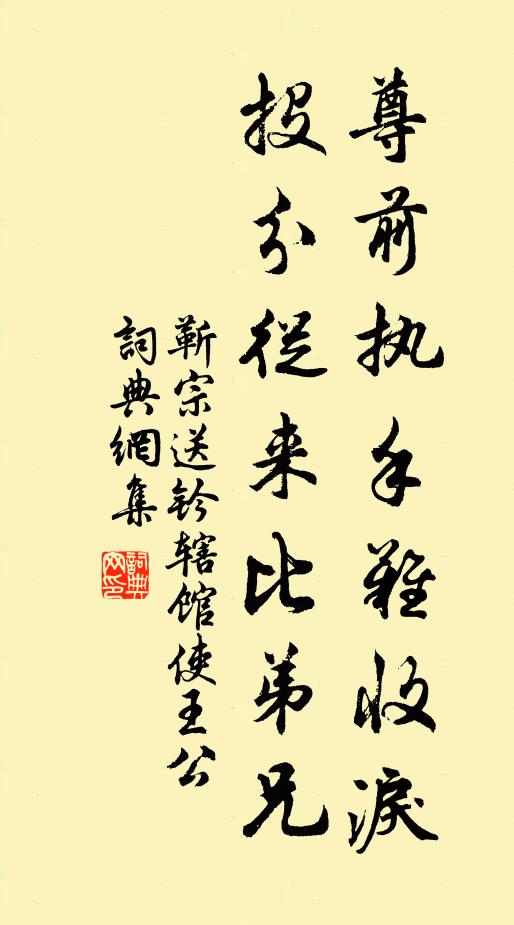 尊前执手難收淚
投分從来比弟兄
靳宗送鈐辖馆使王公
詞典網集
詞典网印